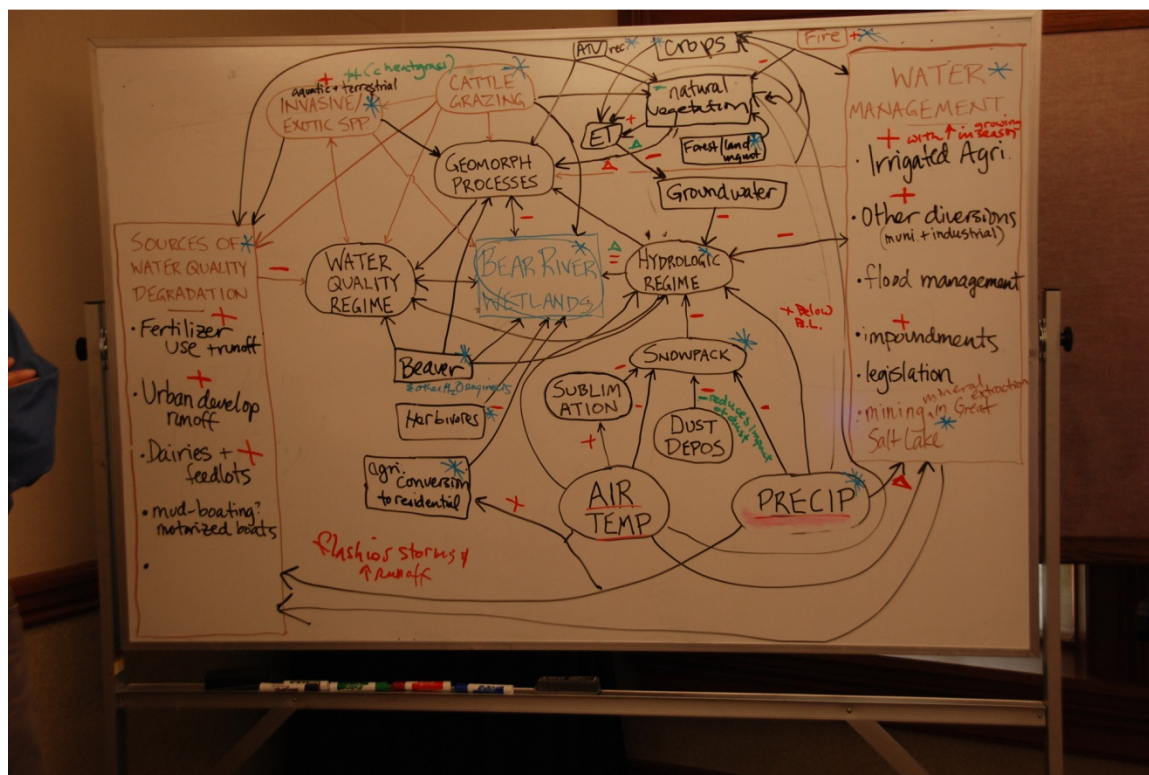 ATV rec.
* Crops
Fire + *
+ ** (cheatgrass)
aquatic + terrestrial
INVASIVE/
EXOTIC SPP.
CATTLE
GRAZING
- natural
vegetation
ET
Forest/land
mgmt
GEOMORPH
PROCESSES
Groundwater
WATER *
MANAGEMENT
+ with ↑ in growing season
• Irrigated Agri.
+
• Other diversions
(muni. + industrial)
• flood management
+
• impoundments
• legislation
• mining, mineral extraction
in Great
Salt Lake *
SOURCES OF *
WATER QUALITY
DEGRADATION
+
• Fertilizer
use + runoff
+
• Urban develop
runoff
• Dairies + +
feedlots
• mud-boating?
motorized boats
•
WATER
QUALITY
REGIME
BEAR RIVER
WETLANDS
HYDROLOGIC
REGIME
+ Below
B.L.
Beaver *
& other H2O engineers
Herbivores *
SNOWPACK *
SUBLIM
ATION
DUST
DEPOS
- reduces impact
of dust
agri. *
conversion
to residential
AIR
TEMP
PRECIP *
flashier storms &
↑ runoff